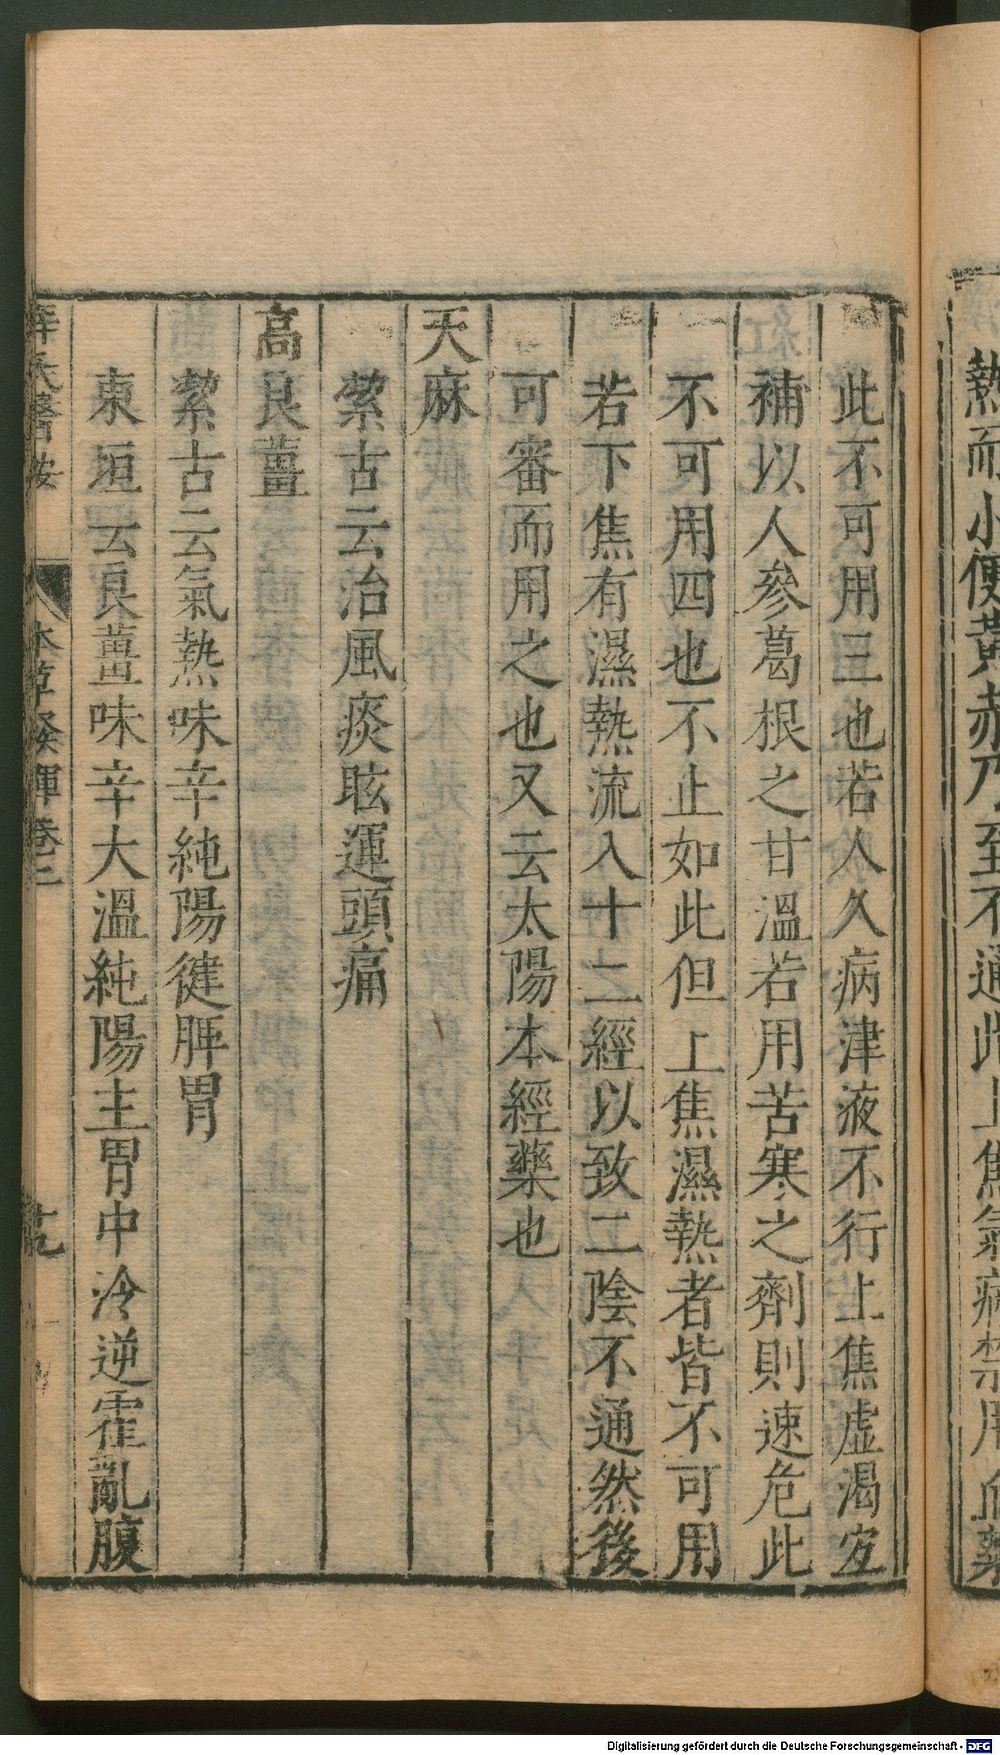 熱而小便黃赤乃至不通此上焦氣病禁用血藥
此不可用三也若人久病津液不行上焦虛渴宜
補以人參葛根之甘溫若用苦寒之劑則速危此
不可用四也不止如此但上焦濕熱者皆不可用
若下焦有濕熱流入十二經以致二陰不通然後
可審而用之也又云太陽本經藥也
天麻
潔古云治風痰眩運頭痛
高良薑
潔古云氣熱味辛純陽健脾胃
東垣云良薑味辛大溫純陽主胃中冷逆霍亂腹
薛氏醫按 本草發揮卷二 十九
Digitalisierung gefördert durch die Deutsche Forschungsgemeinschaft - DFG